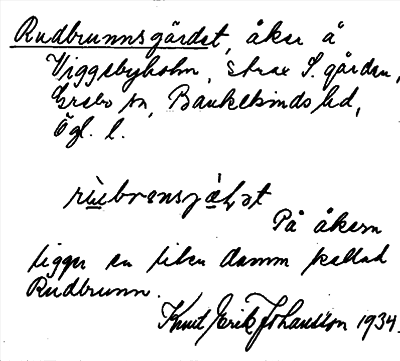 Rudbrunnsgärdet, åker å
Viggebyholm, strax S. gården,
Grebo sn, Bankekinds hd,
Ögl. l.
På åkern
ligger en liten damm kallad
Rudbrunn.
Knut Erik Johansson 1934.